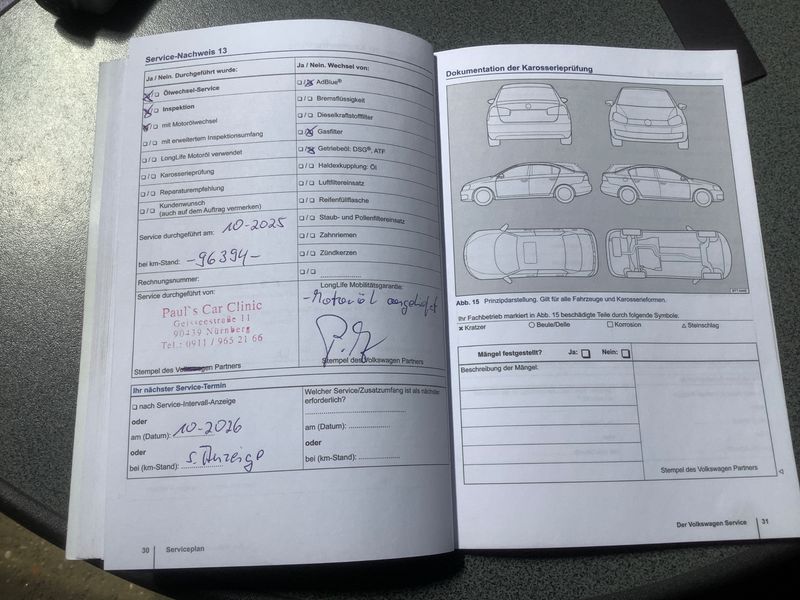 Service-Nachweis 13
Ja / Nein. Durchgeführt wurde:
Ölwechsel-Service
Inspektion
mit Motorölwechsel
mit erweitertem Inspektionsumfang
LongLife Motoröl verwendet
Karosserieprüfung
Reparaturempfehlung
Kundenwunsch
(auch auf dem Auftrag vermerken)
Service durchgeführt am: 10-2025
bei km-Stand: -96394-
Rechnungsnummer:
Service durchgeführt von:
Paul's Car Clinic
Geisseestraße 11
90439 Nürnberg
Tel.: 0911 / 965 21 66
Stempel des Volkswagen Partners
Ja / Nein. Wechsel von:
AdBlue®
Bremsflüssigkeit
Dieselkraftstofffilter
Gasfilter
Getriebeöl: DSG®, ATF
Haldexkupplung: Öl
Luftfiltereinsatz
Reifenfüllflasche
Staub- und Pollenfiltereinsatz
Zahnriemen
Zündkerzen
LongLife Mobilitätsgarantie:
-Motoröl
Stempel des Volkswagen Partners
Ihr nächster Service-Termin
nach Service-Intervall-Anzeige
oder
am (Datum): 10-2026
oder
bei (km-Stand): s. Anzeige
Welcher Service/Zusatzumfang ist als nächster
erforderlich?
am (Datum):
oder
bei (km-Stand):
30 Serviceplan
Dokumentation der Karosserieprüfung
Abb. 15 Prinzipdarstellung. Gilt für alle Fahrzeuge und Karosserieformen.
Ihr Fachbetrieb markiert in Abb. 15 beschädigte Teile durch folgende Symbole:
x Kratzer ○ Beule/Delle □ Korrosion △ Steinschlag
Mängel festgestellt? Ja: □ Nein: □
Beschreibung der Mängel:
Stempel des Volkswagen Partners
Der Volkswagen Service 31